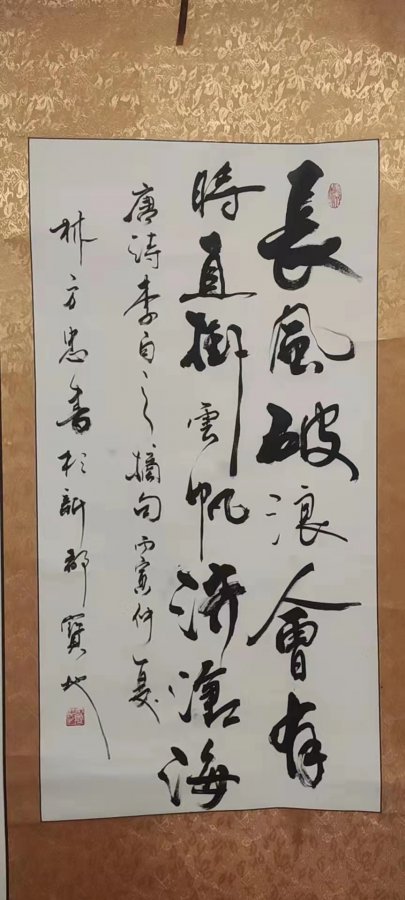 長風破浪會有
時直掛雲帆濟滄海
唐诗李白之摘句丙寅仲夏
林方忠書於新都寶地